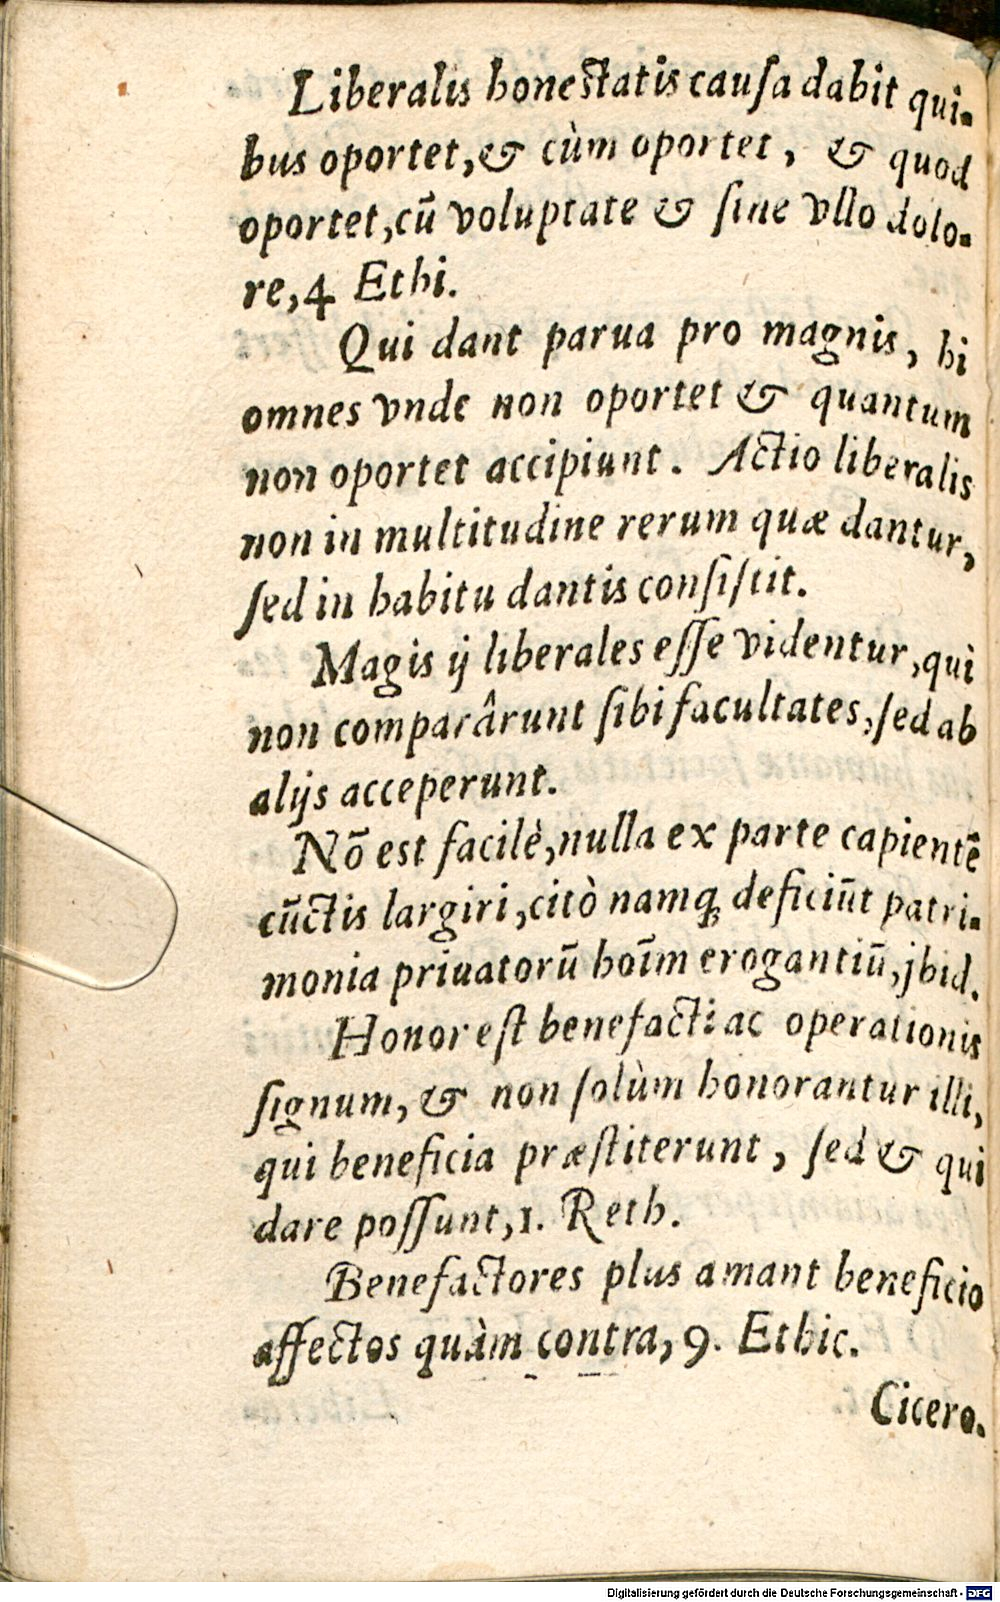 Liberalis honestatis causa dabit qui-
bus oportet, & cùm oportet, & quod
oportet, cū voluptate & sine vllo dolo-
re, 4 Ethi.
Qui dant parua pro magnis, hi
omnes vnde non oportet & quantum
non oportet accipiunt. Actio liberalis
non in multitudine rerum quæ dantur,
sed in habitu dantis consistit.
Magis ij liberales esse videntur, qui
non comparârunt sibi facultates, sed ab
alijs acceperunt.
Nō est facilè, nulla ex parte capientē
cūctis largiri, citò namq; deficiūt patri-
monia priuatorū hoīm erogantiū, jbid.
Honor est benefacti ac operationis
signum, & non solùm honorantur illi,
qui beneficia præstiterunt, sed & qui
dare possunt, 1. Reth.
Benefactores plus amant beneficio
affectos quàm contra, 9. Ethic.
Cicero.
Digitalisierung gefördert durch die Deutsche Forschungsgemeinschaft - DFG